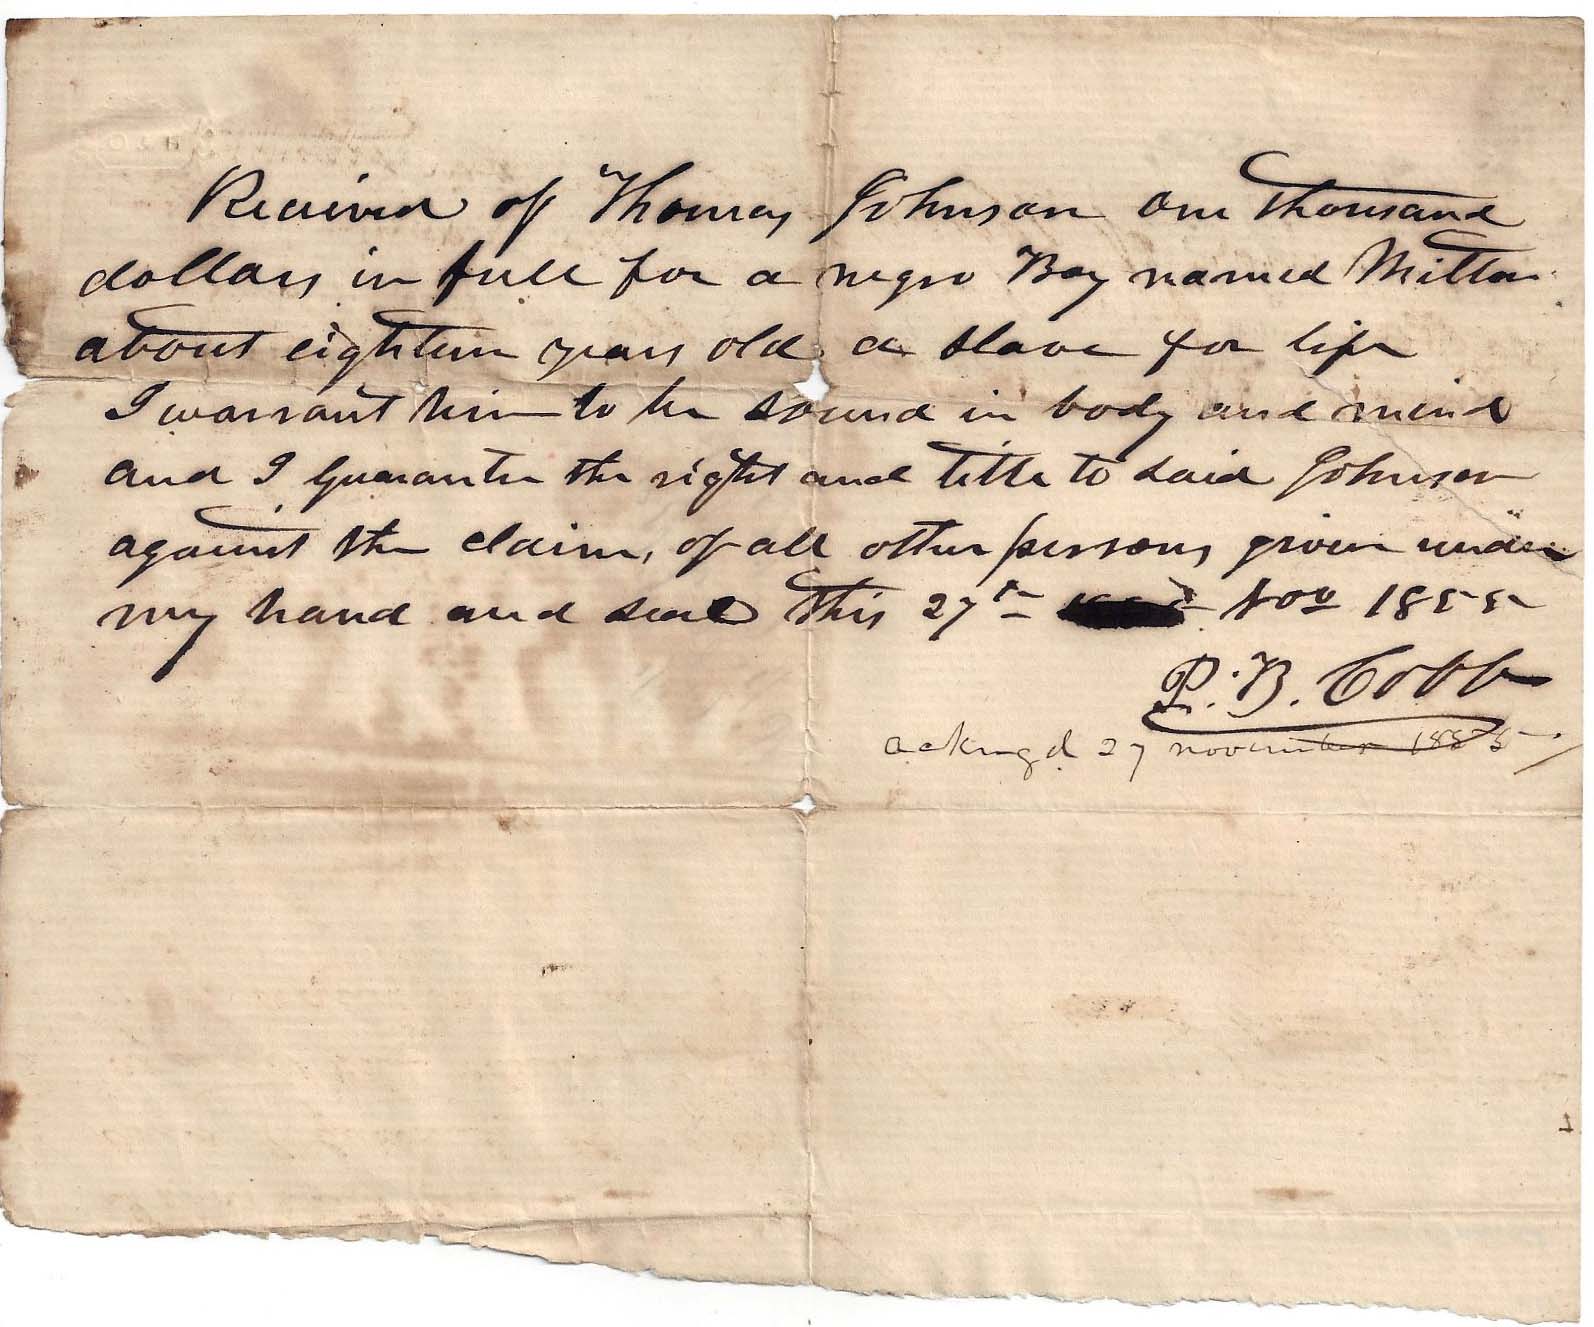 Received of Thomas Johnson one thousand
dollars in full for a negro Boy named Milton
about eighteen years old a slave for life
I warrant him to be sound in body and mind
and I guarantee the right and title to said Johnson
against the claims of all other persons given under
my hand and seal this 27th Nov 1855
P. B. Cobb
ackngd 27 november 1855